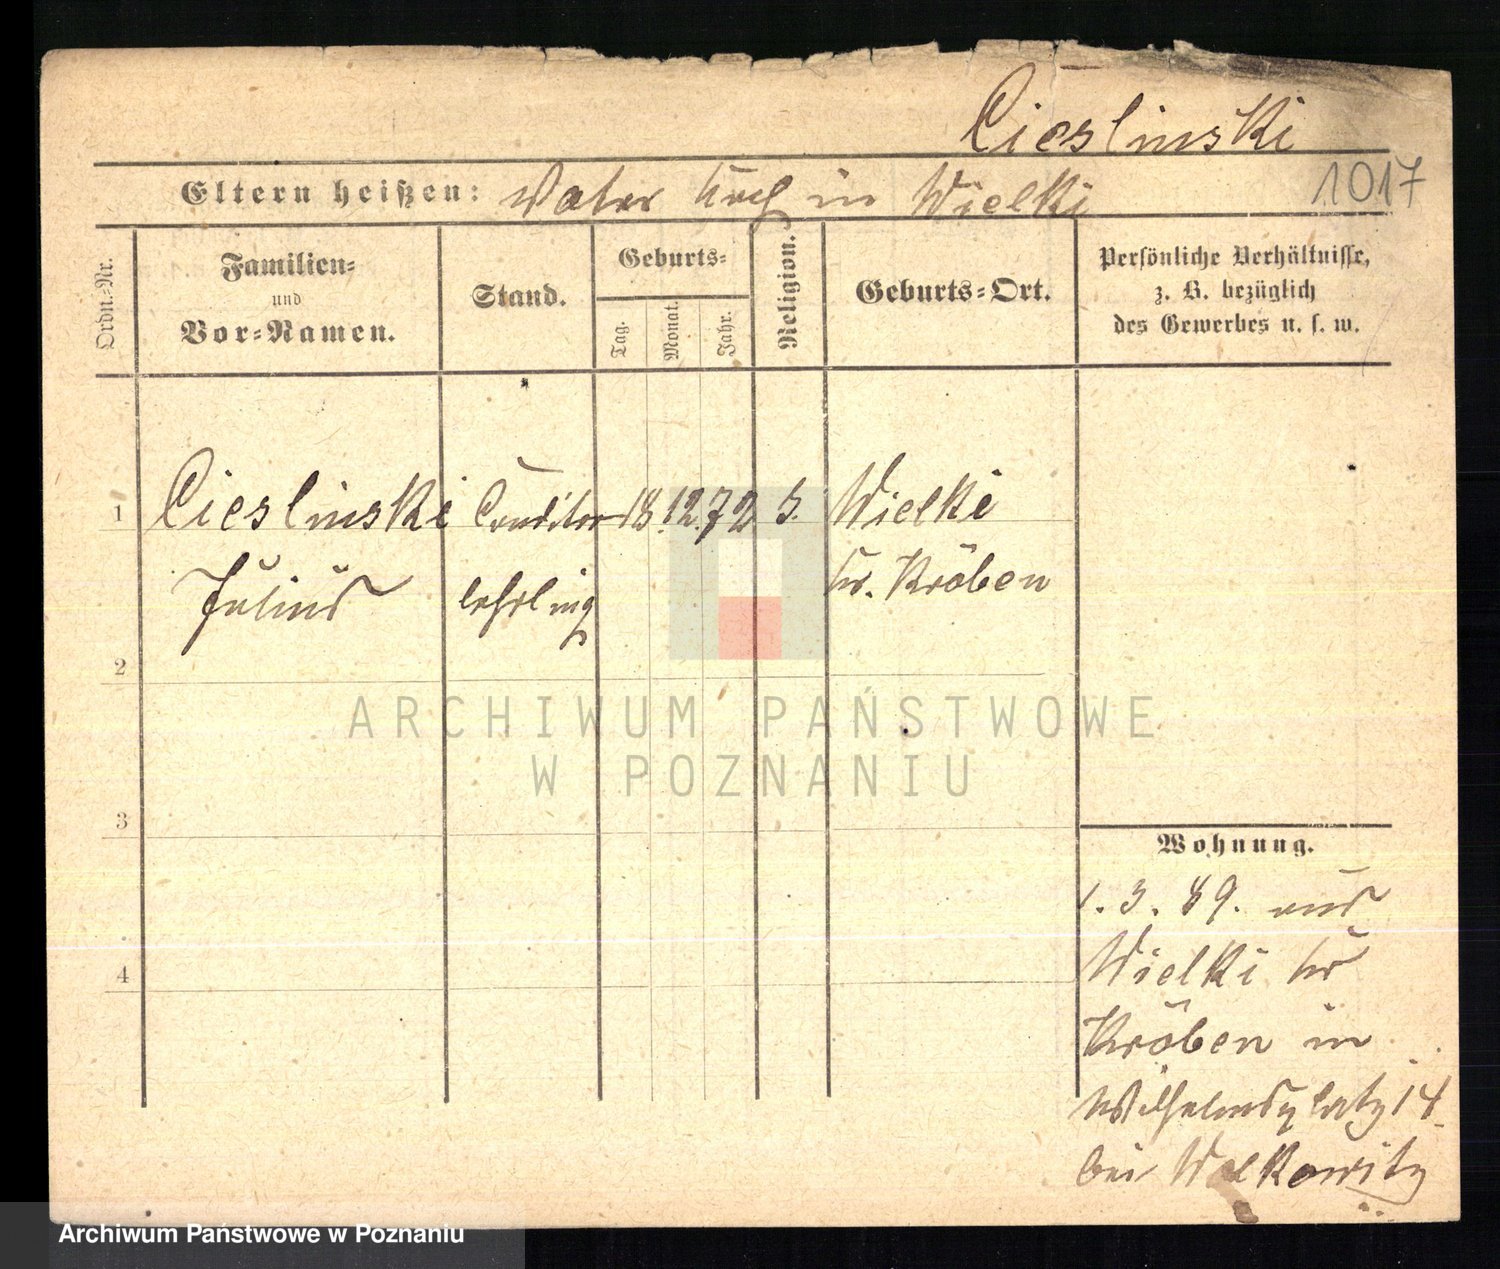 Cieslinski
Eltern heißen: Vater noch in Wielki
1017
Ordn.-Nr.
Familien-
und
Vor-Namen.
Stand.
Geburts-
Tag.
Monat.
Jahr.
Religion.
Geburts-Ort.
Persönliche Verhältnisse,
z. B. bezüglich
des Gewerbes u. s. w.
1 Cieslinski Conditor 18. 12. 72 Wielki
Julius lehrling Kr. Kröben
2
3
4
Wohnung.
1. 3. 89. aus
Wielki Kr
Kröben in
Wilhelmsplatz 14
bei Wolkowitz
ARCHIWUM PAŃSTWOWE
W POZNANIU
Archiwum Państwowe w Poznaniu